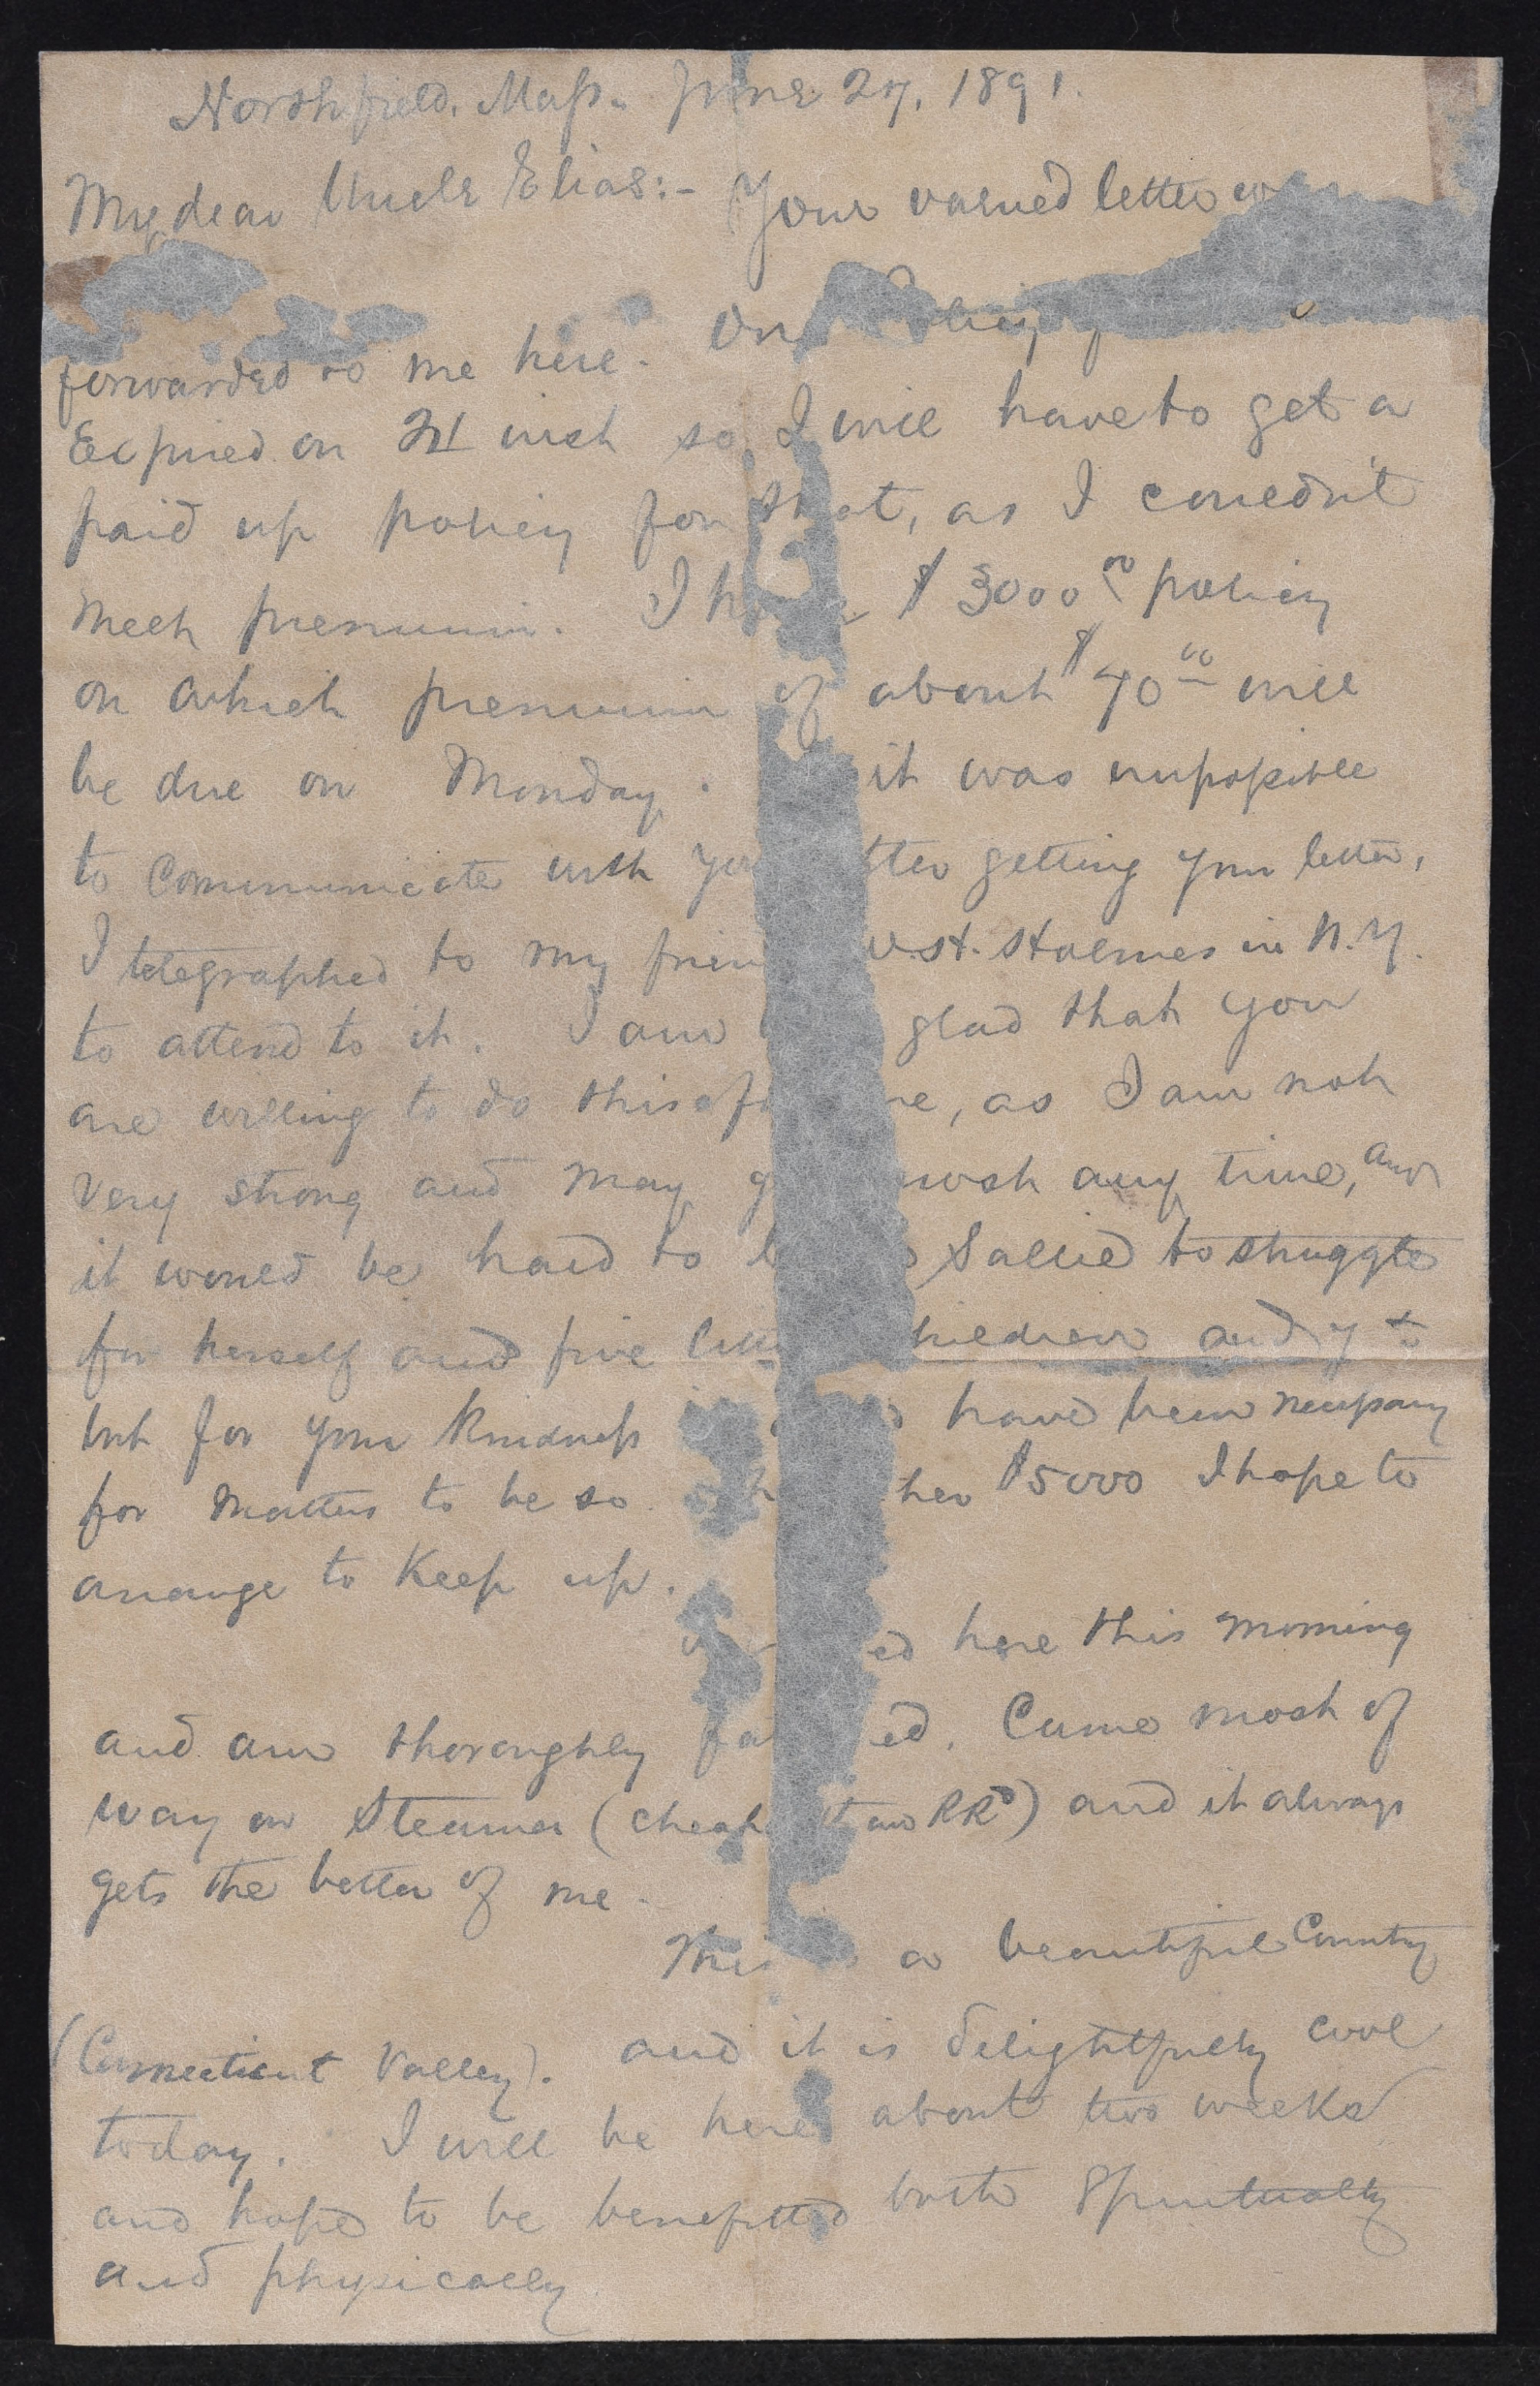 Northfield, Mass. June 27, 1891.
My dear Uncle Elias:- Your valued letter
forwarded to me here. One Policy
Expired on 21 inst so I will have to get a
paid up policy for that, as I couldn't
meet premium. I $3000 00 policy
on which premium of about $70 00 will
be due on Monday. it was impossible
to Communicate with you getting your letter,
I telegraphed to my St. Holmes in N.Y.
to attend to it. I am glad that you
are willing to do this, as I am not
very strong and may most any time, and
it would be hard to Sallie to struggle
for herself and five children and yet
but for your kindness have been necessary
for matters to be so. $5000 I hope to
arrange to keep up.
here this morning
and am thoroughly. Came most of
way on Steamer (than RRd) and it always
gets the better of me.
This a beautiful Country
(Connecticut Valley). and it is delightfully cool
today. I will be here about two weeks
and hope to be benefitted both Spiritually
and physically